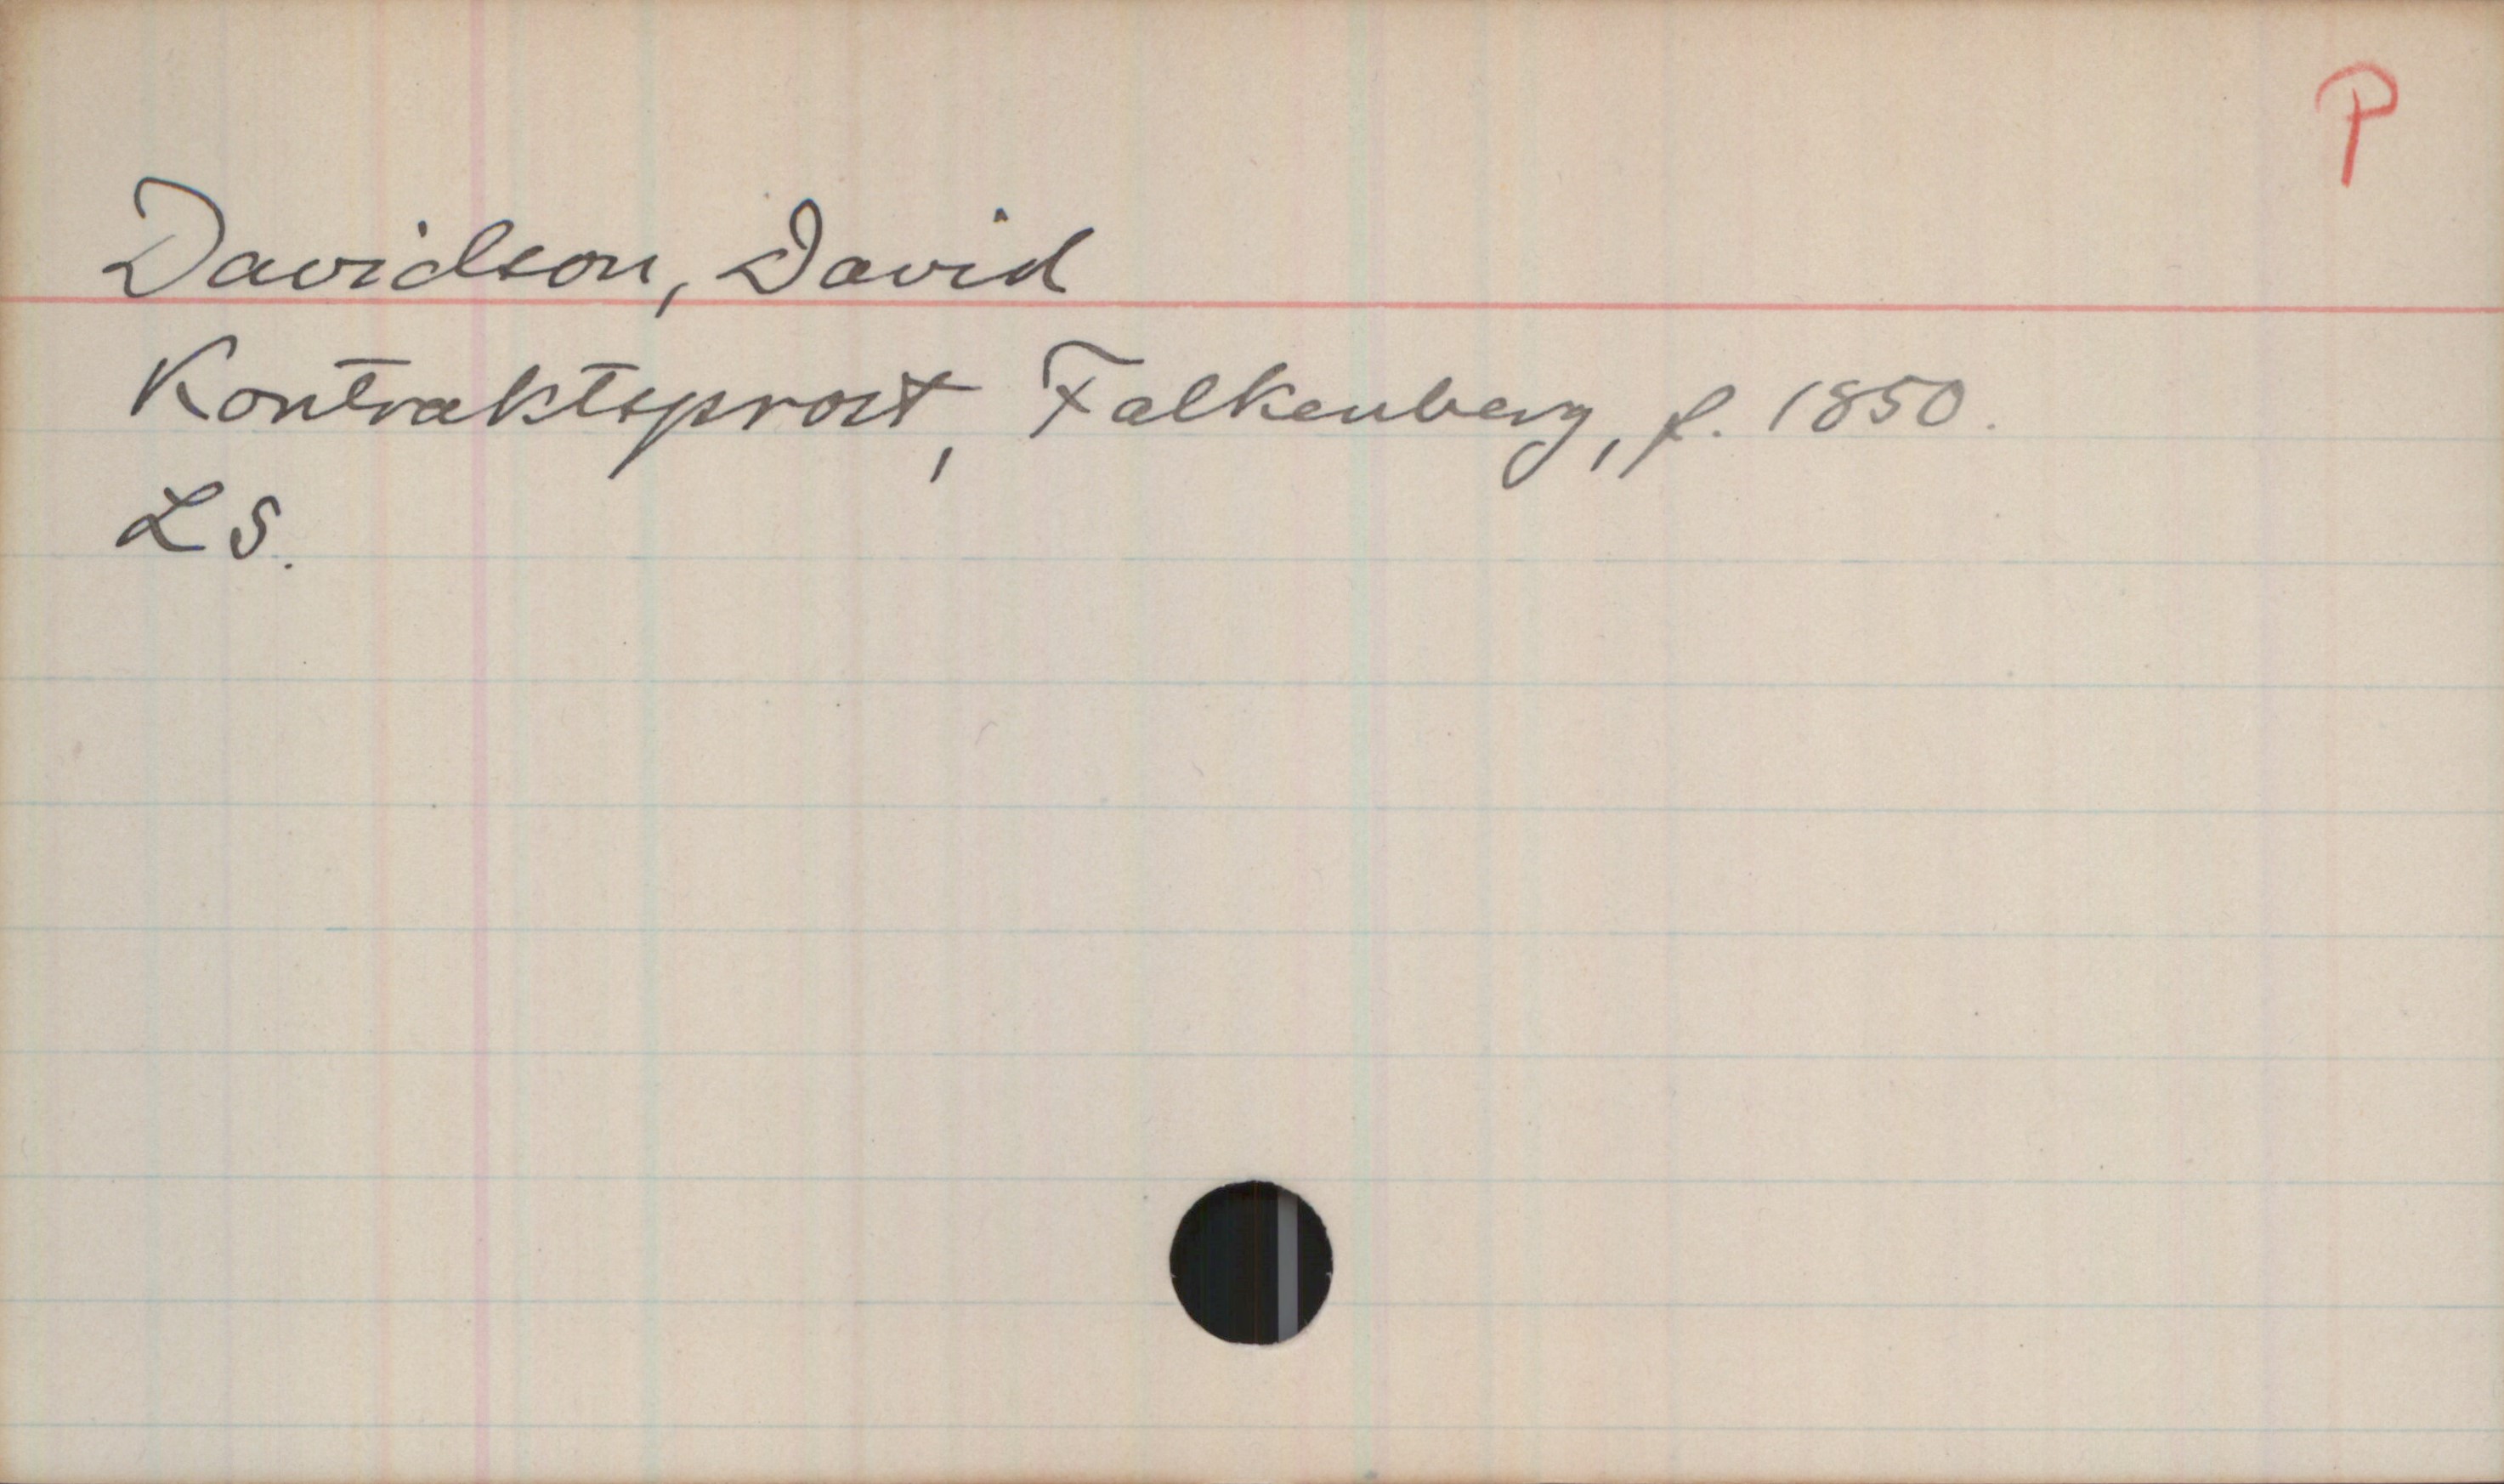 P
Davidson, David
Kontraktsprost, Falkenberg, f. 1850.
LS.